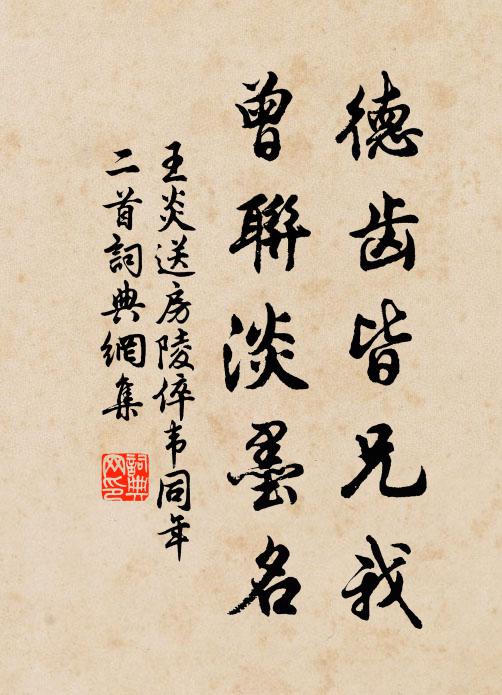 德齿皆兄我
曾聯淡墨名
王炎送房陵倅韦同年
二首詞典網集
詞典網印